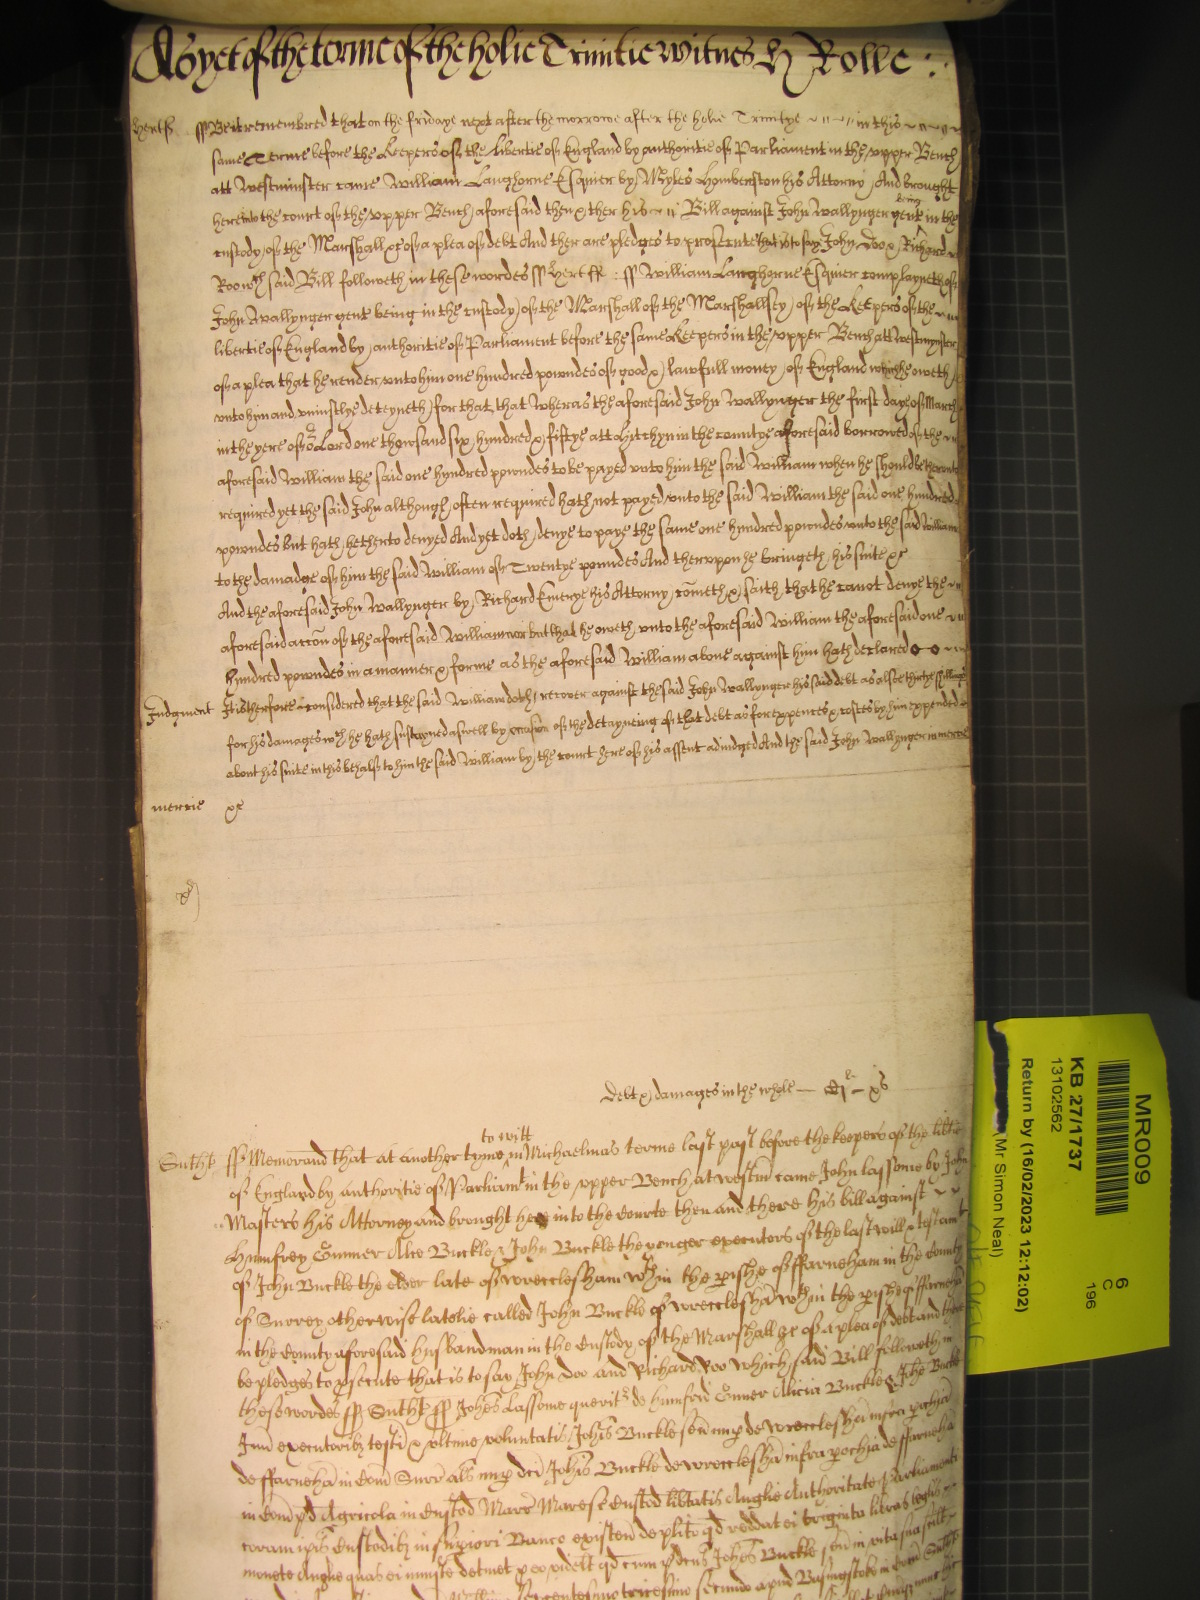 As yet of the terme of the holie Trinitie witnes H Rolle :.
Hertf ss Be it remembred that on the fridaye next after the morrowe after the holie Trinitye in this
same Terme before the Keepers of the libertie of England by authoritie of Parliament in the upper Bench
att Westminster came William Langhorne Esquier by Myles Hemberston his Attorny And brought
here into the court of the upper Bench aforesaid then & ther his Bill against John Wallynger gent being in the
custody of the Marshall &c of a plea of debt And ther are pledges to prosecute that is to say John Doo & Richard
Roo wch said Bill followeth in these wordes ss Hertf : ss William Langhorne Esquier complayneth of
John Wallynger gent being in the custody of the Marshall of the Marshallsey of the Keepers of the
libertie of England by authoritie of Parliament before the same Keepers in the upper Bench att Westmynster
of a plea that he render unto him one hundred powndes of good & lawfull money of England which he oweth
unto him and uniustlye deteyneth for that, that wheras the aforesaid John Wallynger the first daye of March
in the yere of or Lord one thowsand six hundred & fiftye att Hitchyn in the countye aforesaid borrowed of the
aforesaid William the said one hundred powndes to be payed unto him the said William when he should be herunto
required yet the said John although often required hath not payed unto the said William the said one hundred
powndes but hath hetherto denyed And yet doth denye to paye the same one hundred powndes unto the said William
to the damadge of him the said William of Twentye powndes And therupon he bringeth his suite &c
And the aforesaid John Wallynger by Richard Emerye his Attorny cometh & saith that he canot denye the
aforesaid accon of the aforesaid William nor but that he oweth unto the aforesaid William the aforesaid one
hundred powndes in a manner & forme as the aforesaid William above against him hath declared
Judgment It is therfore considered that the said William doth recover against the said John Wallynger his said debt as alsoe thirtye shillings
for his damages wch he hath susteyned aswell by occasion of the deteyneing of that debt as for expences & costes by him expended
about his suite in this behalf to him the said William by the court here of his assent adiudged And the said John Wallynger in mercie
mercie &c
Debt & damages in the whole — Cli — xs
to witt
Sutht ss Memorand that at another tyme in Michaelmas terme last past before the keepers of the libtie
of England by authoritie of Parliamt in the upper Bench at westm came John Lassome by John
Masters his Attorney and brought here into the Courte then and there his bill against
Humfrey Conner Alice Buckle & John Buckle the yonger executors of the last will & testamt
of John Buckle the elder late of Wrecclesham wthin the pishe of ffarneham in the County
of Surrey otherwise latelie called John Buckle of Wrecclesha wthin the pishe of ffarneha
in the County aforesaid husbandman in the Custody of the Marshall &c of a plea of debt and there
be pledges to psecute that is to say John Doo and Richard Roo Which said Bill followeth in
these wordes ss Sutht ss Johes Lassome querit de Humfrid Conner Alicia Buckle & Johe Buckle
Jun executorib testi & ultime voluntatis Johis Buckle sen nup de Wrecclesha infra pochia
de ffarneha in Com Surr als nup dci Johis Buckle de Wrecclesha infra pochia de ffarneha
in Com pd Agricola in Custod Marr Marese Custod libtatis Anglie Authoritate Parliamenti
coram ipis Custodib in supiori Banco existen de plito qd reddat ei triginta libras legis
monete Anglie quas ei iniuste detinet p eo videlt qd cum pdcus Johes Buckle sen in vita sua
tricesimo secundo apud Basingstoke in Com Sutht
MR009
6
C
196
KB 27/1737
13102562
Return by (16/02/2023 12:12:02)
(Mr Simon Neal)